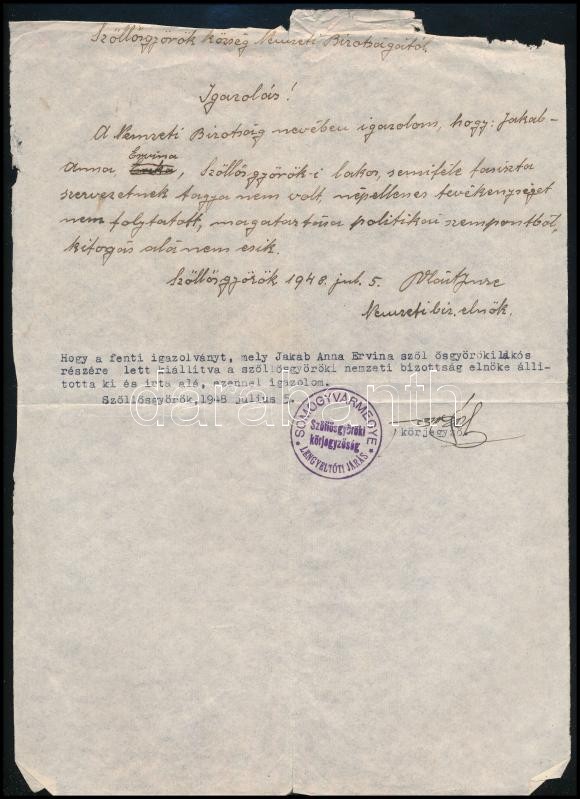 Szöllősgyörök község Nemzeti Bizottságától.
Igazolás!
A Nemzeti Bizottság nevében igazolom, hogy: Jakab-
Anna, Ervina, Szöllősgyörök-i lakos, semiféle fasiszta
szervezetnek tagja nem volt, népellenes tevékenységet
nem folytatott, magatartása politikai szempontból,
kifogás alá nem esik.
Szöllősgyörök 1948. jul. 5.
Nemzeti biz. elnök.
Hogy a fenti igazolványt, mely Jakab Anna Ervina szöl ösgyöröki lakós
részére lett kiállitva a szöllösgyöröki nemzeti bizottság elnöke álli-
totta ki és irta alá, ezennel igazolom.
Szöllösgyörök, 1948 július 5.
SOMOGYVÁRMEGYE
Szöllősgyöröki
körjegyzőség
LENGYELTÓTI JÁRÁS
/körjegyző
darabanth